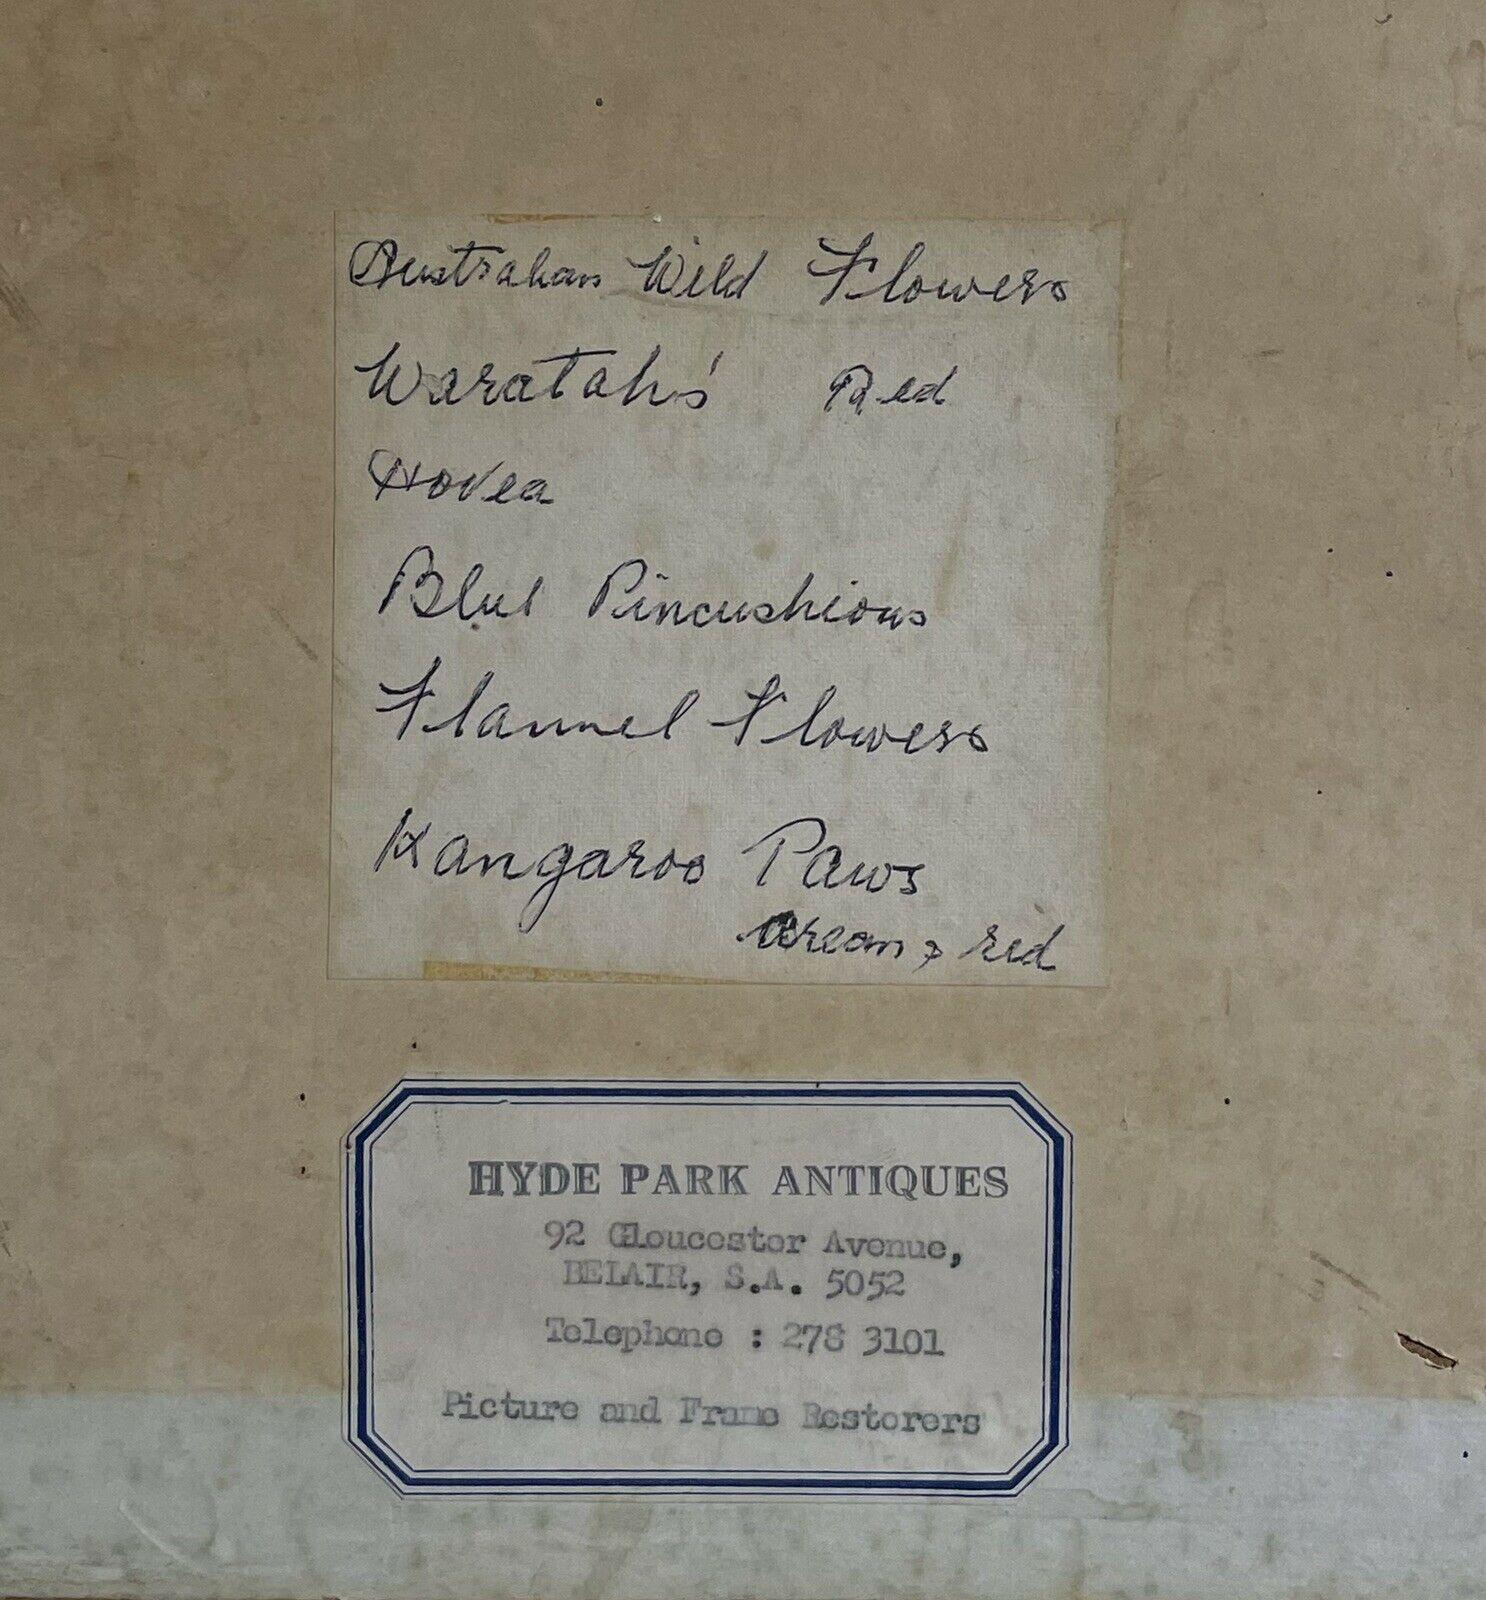 Australian Wild Flowers
Waratah's Red
Hovea
Blue Pincushions
Flannel Flowers
Kangaroo Paws
cream & red
HYDE PARK ANTIQUES
92 Gloucester Avenue,
BELAIR, S.A. 5052
Telephone : 278 3101
Picture and Frame Restorers